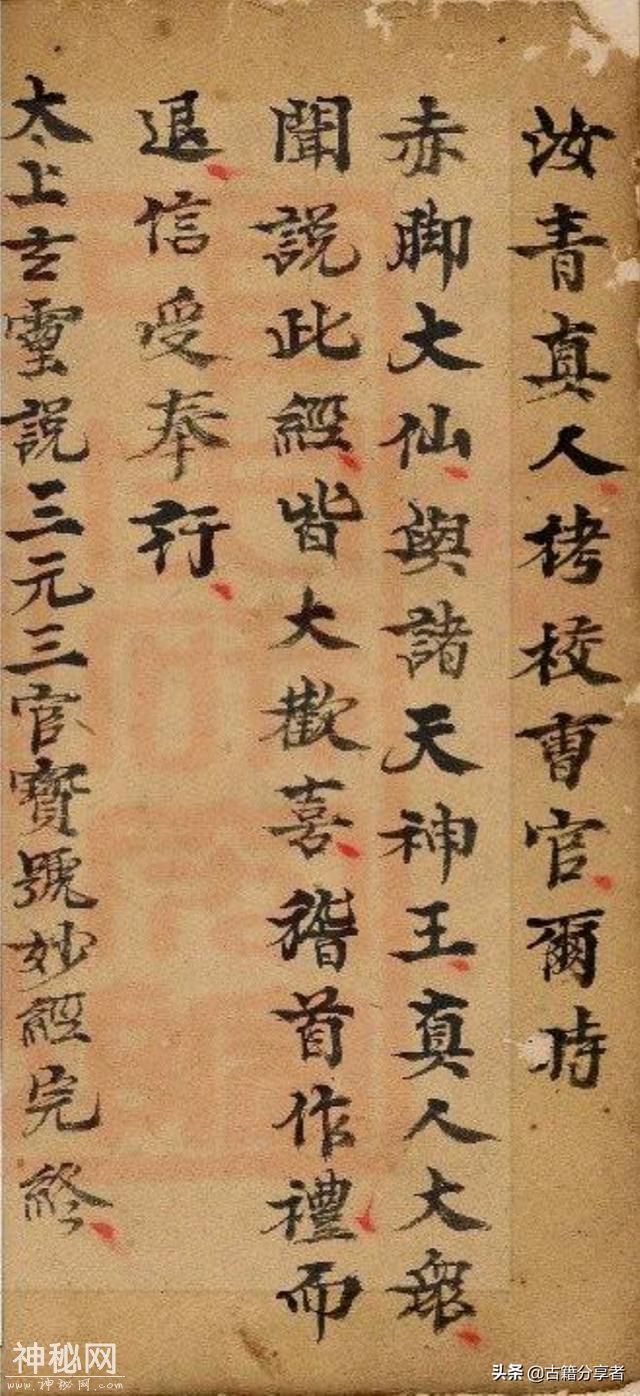 汝青真人栲校曹官爾時
赤脚大仙與諸天神王真人大衆
聞說此經皆大歡喜稽首作禮而
退信受奉行
太上玄靈說三元三官寳號妙經完終
神秘网
www.神秘网.com
头条 @古籍分享者